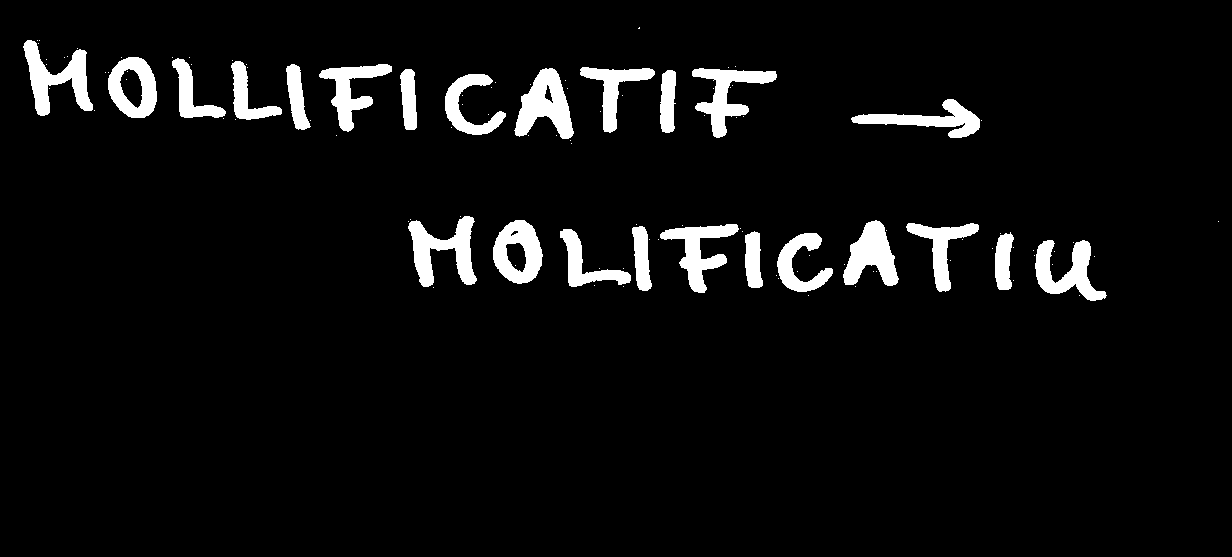 MOLLIFICATIF →
MOLIFICATIU